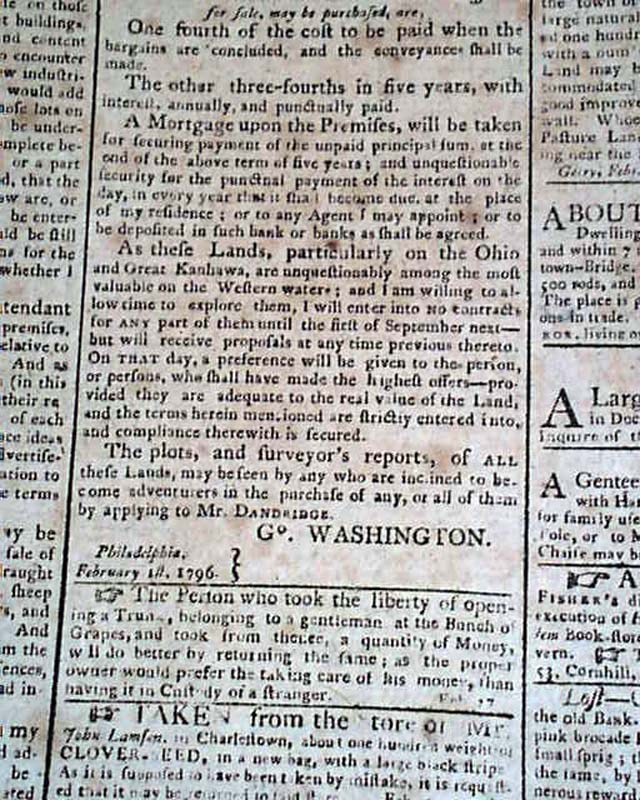 le on those
t buildings,
nd content
o encounter
w industri-
would add
hose lots on
be under-
mplete be-
or a part
d, that the
ow are, or
be enter-
uld be still
ns for the
whether I
ttendant
premises,
elative to
And as
s (in this
their re
of each
ace ideas
dvertise-
ation to
e terms
ay be
sale of
raught
sheep
s, and
And
m the
ences,
ad in-
my
d ad-
be
for sale, may be purchased, are,
One fourth of the cost to be paid when the
bargains are concluded, and the conveyances shall be
made.
The other three-fourths in five years, with
interest, annually, and punctually paid.
A Mortgage upon the Premises, will be taken
for securing payment of the unpaid principal sum, at the
end of the above term of five years; and unquestionable
security for the punctual payment of the interest on the
day, in every year that it shall become due, at the place
of my residence; or to any Agent I may appoint; or to
be deposited in such bank or banks as shall be agreed.
As these Lands, particularly on the Ohio
and Great Kanhawa, are unquestionably among the most
valuable on the Western waters; and I am willing to al-
low time to explore them, I will enter into NO contracts
for ANY part of them until the first of September next—
but will receive proposals at any time previous thereto.
On THAT day, a preference will be given to the person,
or persons, who shall have made the highest offers—pro-
vided they are adequate to the real value of the Land,
and the terms herein mentioned are strictly entered into,
and compliance therewith is secured.
The plots, and surveyor's reports, of ALL
these Lands, may be seen by any who are inclined to be-
come adventurers in the purchase of any, or all of them
by applying to Mr. DANDRIDGE.
Go. WASHINGTON.
Philadelphia,
February 1st. 1796.
☞ The Person who took the liberty of open-
ing a Trunk, belonging to a gentleman at the Bunch of
Grapes, and took from thence, a quantity of Money,
will do better by returning the same; as the proper
owner would prefer the taking care of his money, than
having it in Custody of a stranger.
☞ TAKEN from the Store of Mr.
John Lamson, in Charlestown, about one hundred weight of
CLOVER-SEED, in a new bag, with a large black stripe
As it is supposed to have been taken by mistake, it is request-
ed that it may be returned to said store
the town of
large natural
ed one hundr
with a num
Land may b
commodated
good improv
wall. Whoe
Pasture Land
ing near the
Gerry, Febr.
ABOUT
Dwelling
and within 7
town-Bridge,
500 rods, and
The place is
ons in trade.
ROX, living o
A Larg
in Doc
Inquire of t
A Gentee
with Har
for family use
Pole, or to M
Chaise may b
☞ A
FISHER's di
execution of
dem Book-store
vern. ☞ T
53, Cornhill,
Lost—
the old Bank
pink brocade
small sprig; t
the same, by
nerous reward